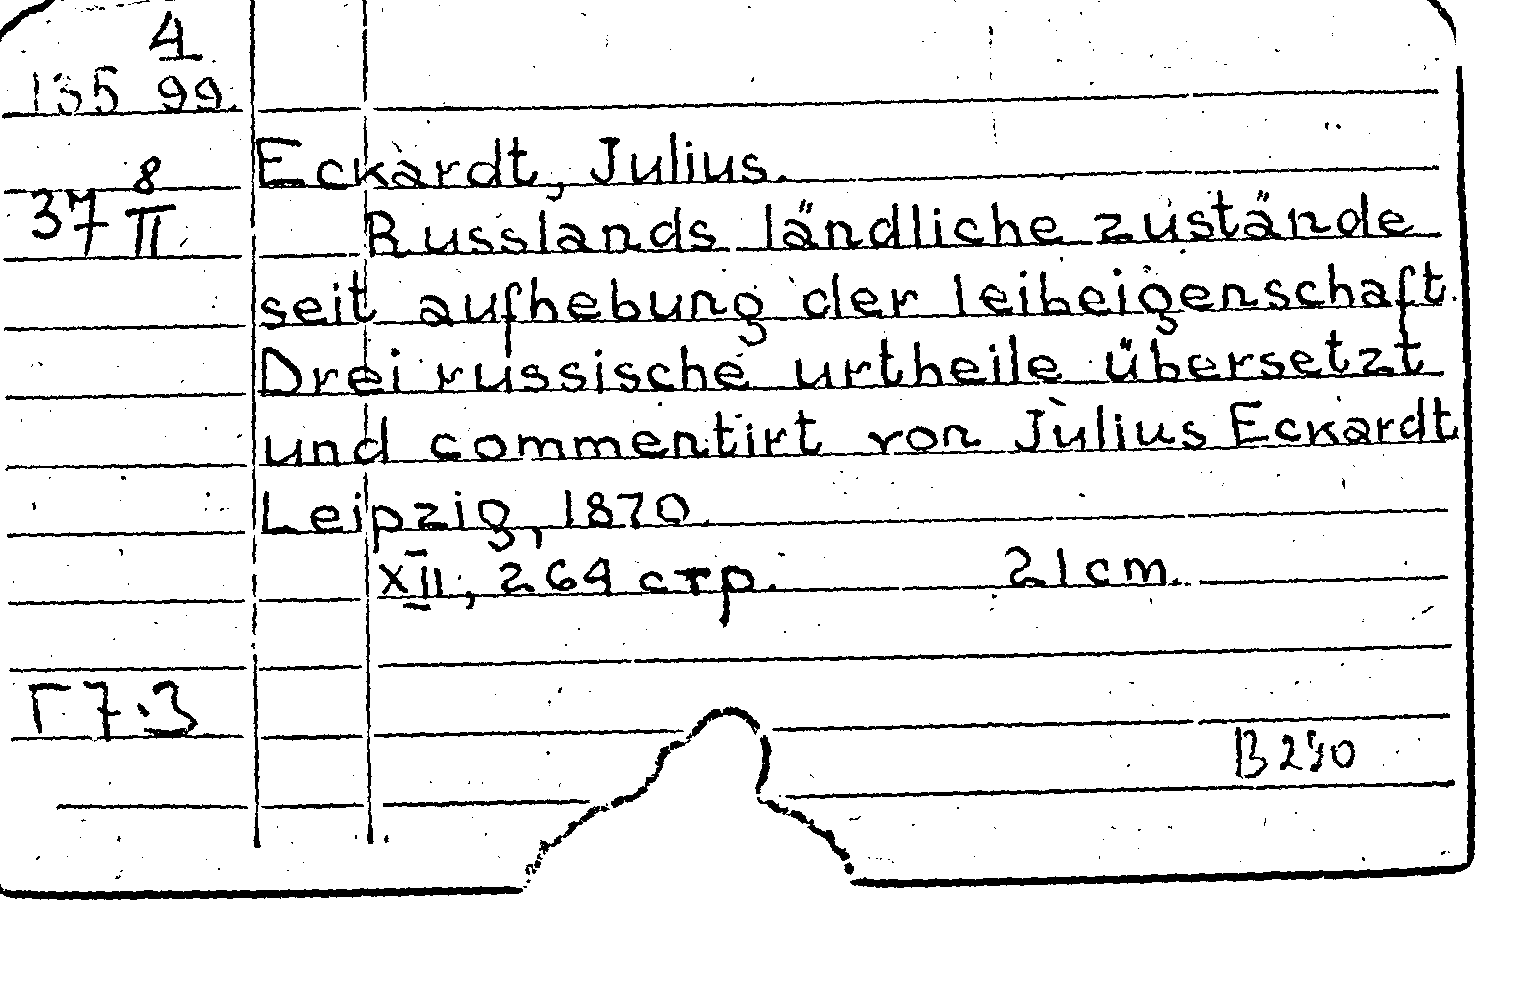 4
135 99.
Eckardt, Julius.
37 8
II
Russlands ländliche zustände
seit aufhebung der leibeigenschaft.
Drei russische urtheile übersetzt
und commentirt von Julius Eckardt.
Leipzig, 1870.
XII, 264 стр. 21 cm.
Г 7.3